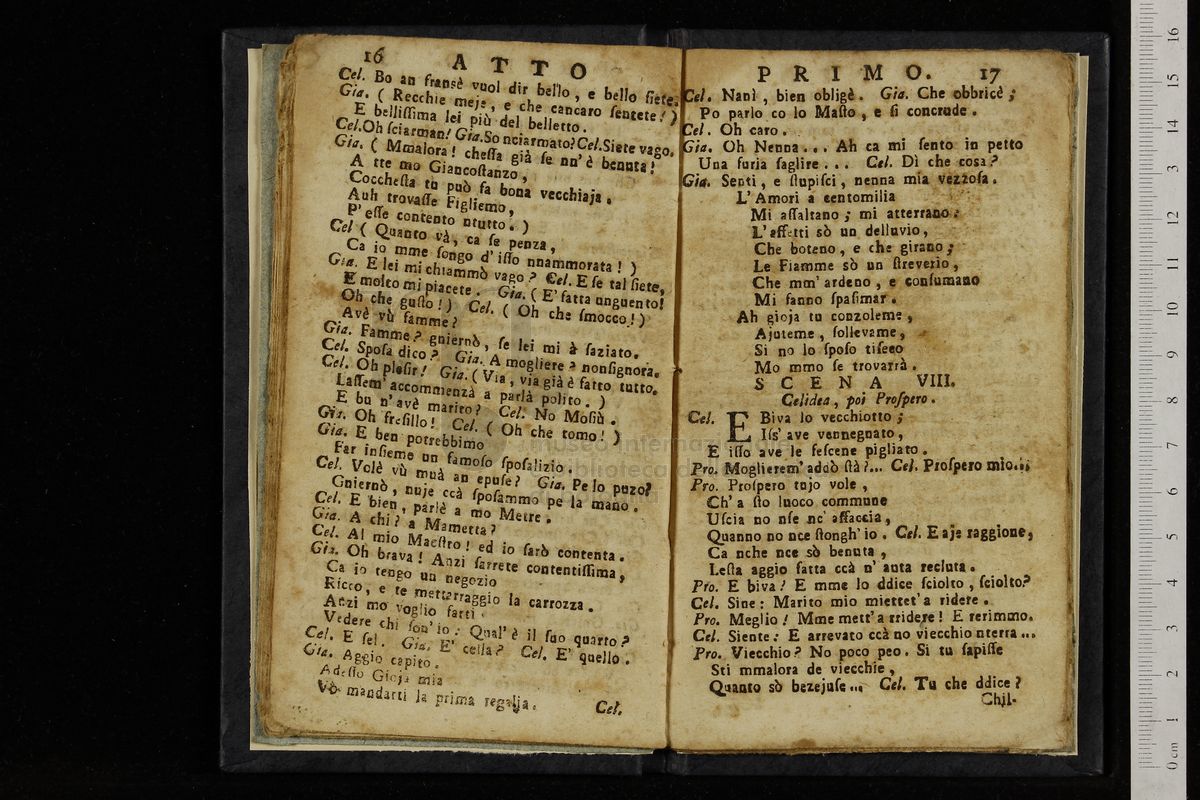 16 ATTO
Cel. Bo an fransè vuol dir bello, e bello siete.
Gia. ( Recchie meje, e che cancaro sentete! )
E bellissima lei più del belletto.
Cel. Oh sciarman! Gia. So nciarmato? Cel. Siete vago.
Gia. ( Mmalora! chessa già se nn'è benuta!
A tte mo Giancostanzo,
Cocchesta tu può fa bona vecchiaja.
Auh trovasse Figliemo,
P' esse contento ntutto. )
Cel ( Quanto và, ca se penza,
Ca io mme songo d' isso nnammorata! )
Gia. E lei mi chiammò vago? Cel. E se tal siete,
E molto mi piacete. Gia. ( E' fatta unguento!
Oh che gusto! ) Cel. ( Oh che smocco! )
Avè vù famme?
Gia. Famme? gniernò, se lei mi à saziato.
Cel. Sposa dico? Gia. A mogliere? nonsignora.
Cel. Oh plesir! Gia. ( Via, via già è fatto tutto.
Lassem' accommenzà a parlà polito. )
E bu n' avè marito? Cel. No Mosiù.
Gia. Oh fresillo! Cel. ( Oh che tomo! )
Gia. E ben potrebbimo
Far insieme un famoso sposalizio.
Cel. Volè vù muà an epuse? Gia. Pe lo puzo?
Gniernò, nuje ccà sposammo pe la mano.
Cel. E bien, parlè a mo Metre.
Gia. A chi? a Mametta?
Cel. Al mio Maestro! ed io sarò contenta.
Gia. Oh brava! Anzi sarrete contentissima,
Ca io tengo un negozio
Ricco, e te metterraggio la carrozza.
Anzi mo voglio farti
Vedere chi son' io: Qual' è il suo quarto?
Cel. E sel. Gia. E' cella? Cel. E' quello.
Gia. Aggio capito.
Adesso Gioja mia
Vò mandarti la prima regalja.
Cel.
PRIMO. 17
Cel. Nanì, bien obligè. Gia. Che obbricè;
Po parlo co lo Masto, e si concrude.
Cel. Oh caro.
Gia. Oh Nenna... Ah ca mi sento in petto
Una furia saglire... Cel. Dì che cosa?
Gia. Senti, e stupisci, nenna mia vezzosa.
L' Amori a centomilia
Mi assaltano; mi atterrano:
L' affetti sò un delluvio,
Che boteno, e che girano;
Le Fiamme sò un streverio,
Che mm' ardeno, e consumano
Mi fanno spasimar.
Ah gioja tu conzoleme,
Ajuteme, sollevame,
Si no lo sposo tiseco
Mo mmo se trovarrà.
SCENA VIII.
Celidea, poi Prospero.
Cel. E Biva lo vecchiotto;
Iss' ave vennegnato,
E isso ave le fescene pigliato.
Pro. Moglierem' addò stà?... Cel. Prospero mio...
Pro. Prospero tujo vole,
Ch' a sto luoco commune
Uscia no nse nc' affaccia,
Quanno no nce stongh' io. Cel. E aje raggione,
Ca nche nce sò benuta,
Lesta aggio fatta ccà n' auta recluta.
Pro. E biva! E mme lo ddice sciolto, sciolto?
Cel. Sine: Marito mio miettet' a ridere.
Pro. Meglio! Mme mett' a rridere! E rerimmo.
Cel. Siente: E arrevato ccà no viecchio nterra...
Pro. Viecchio? No poco peo. Si tu sapisse
Sti mmalora de viecchie,
Quanto sò bezejuse... Cel. Tu che ddice?
Chil-
museo internazionale
biblioteca d
16 15 14 13 12 11 10 9 8 7 6 5 4 3 2 1 0 cm